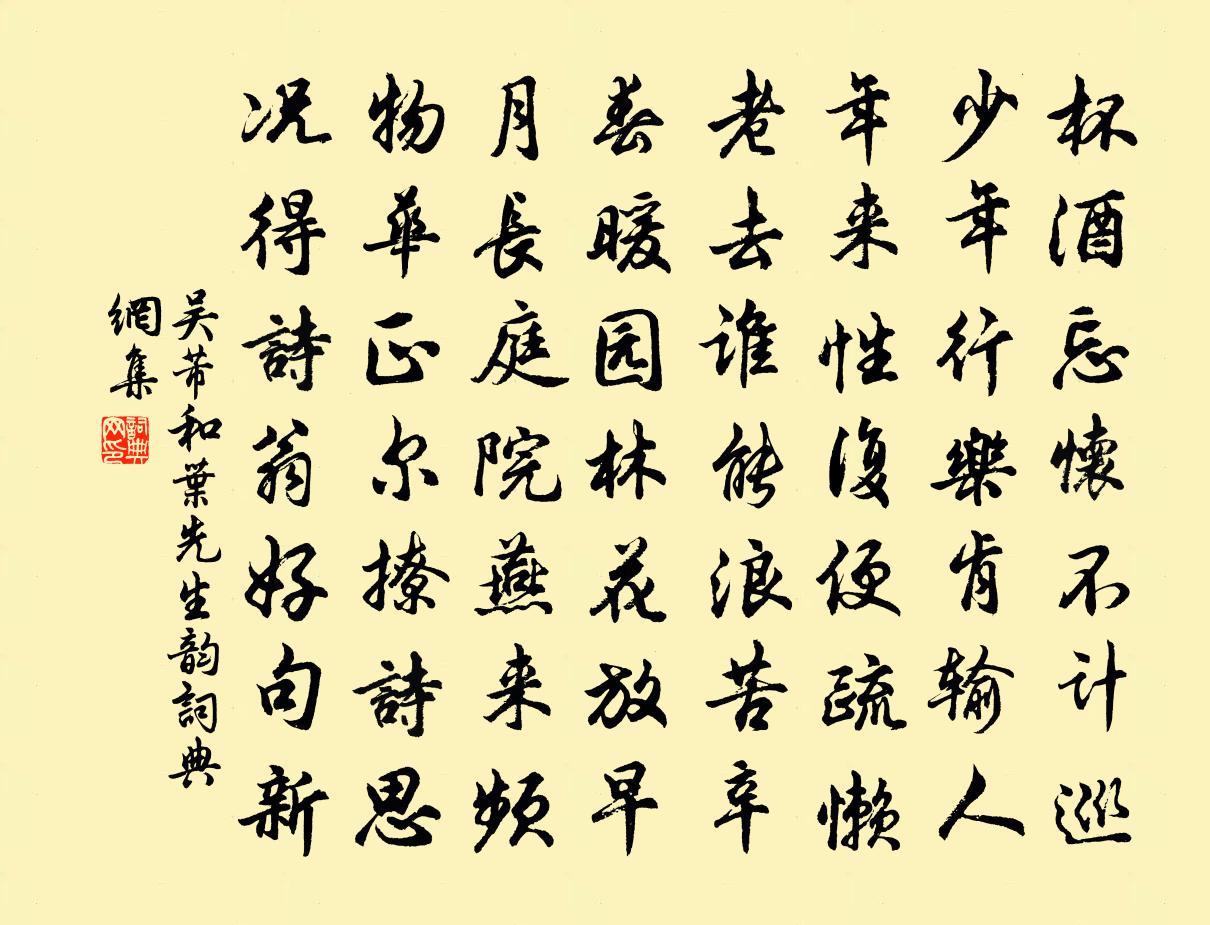 杯酒忘懷不计巡
少年行樂肯输人
年来性復便疏懒
老去谁能浪苦辛
春暖园林花放早
月長庭院燕来频
物華正尔撩詩思
况得詩翁好句新
吴芾和葉先生韵詞典
網集
詞典网印